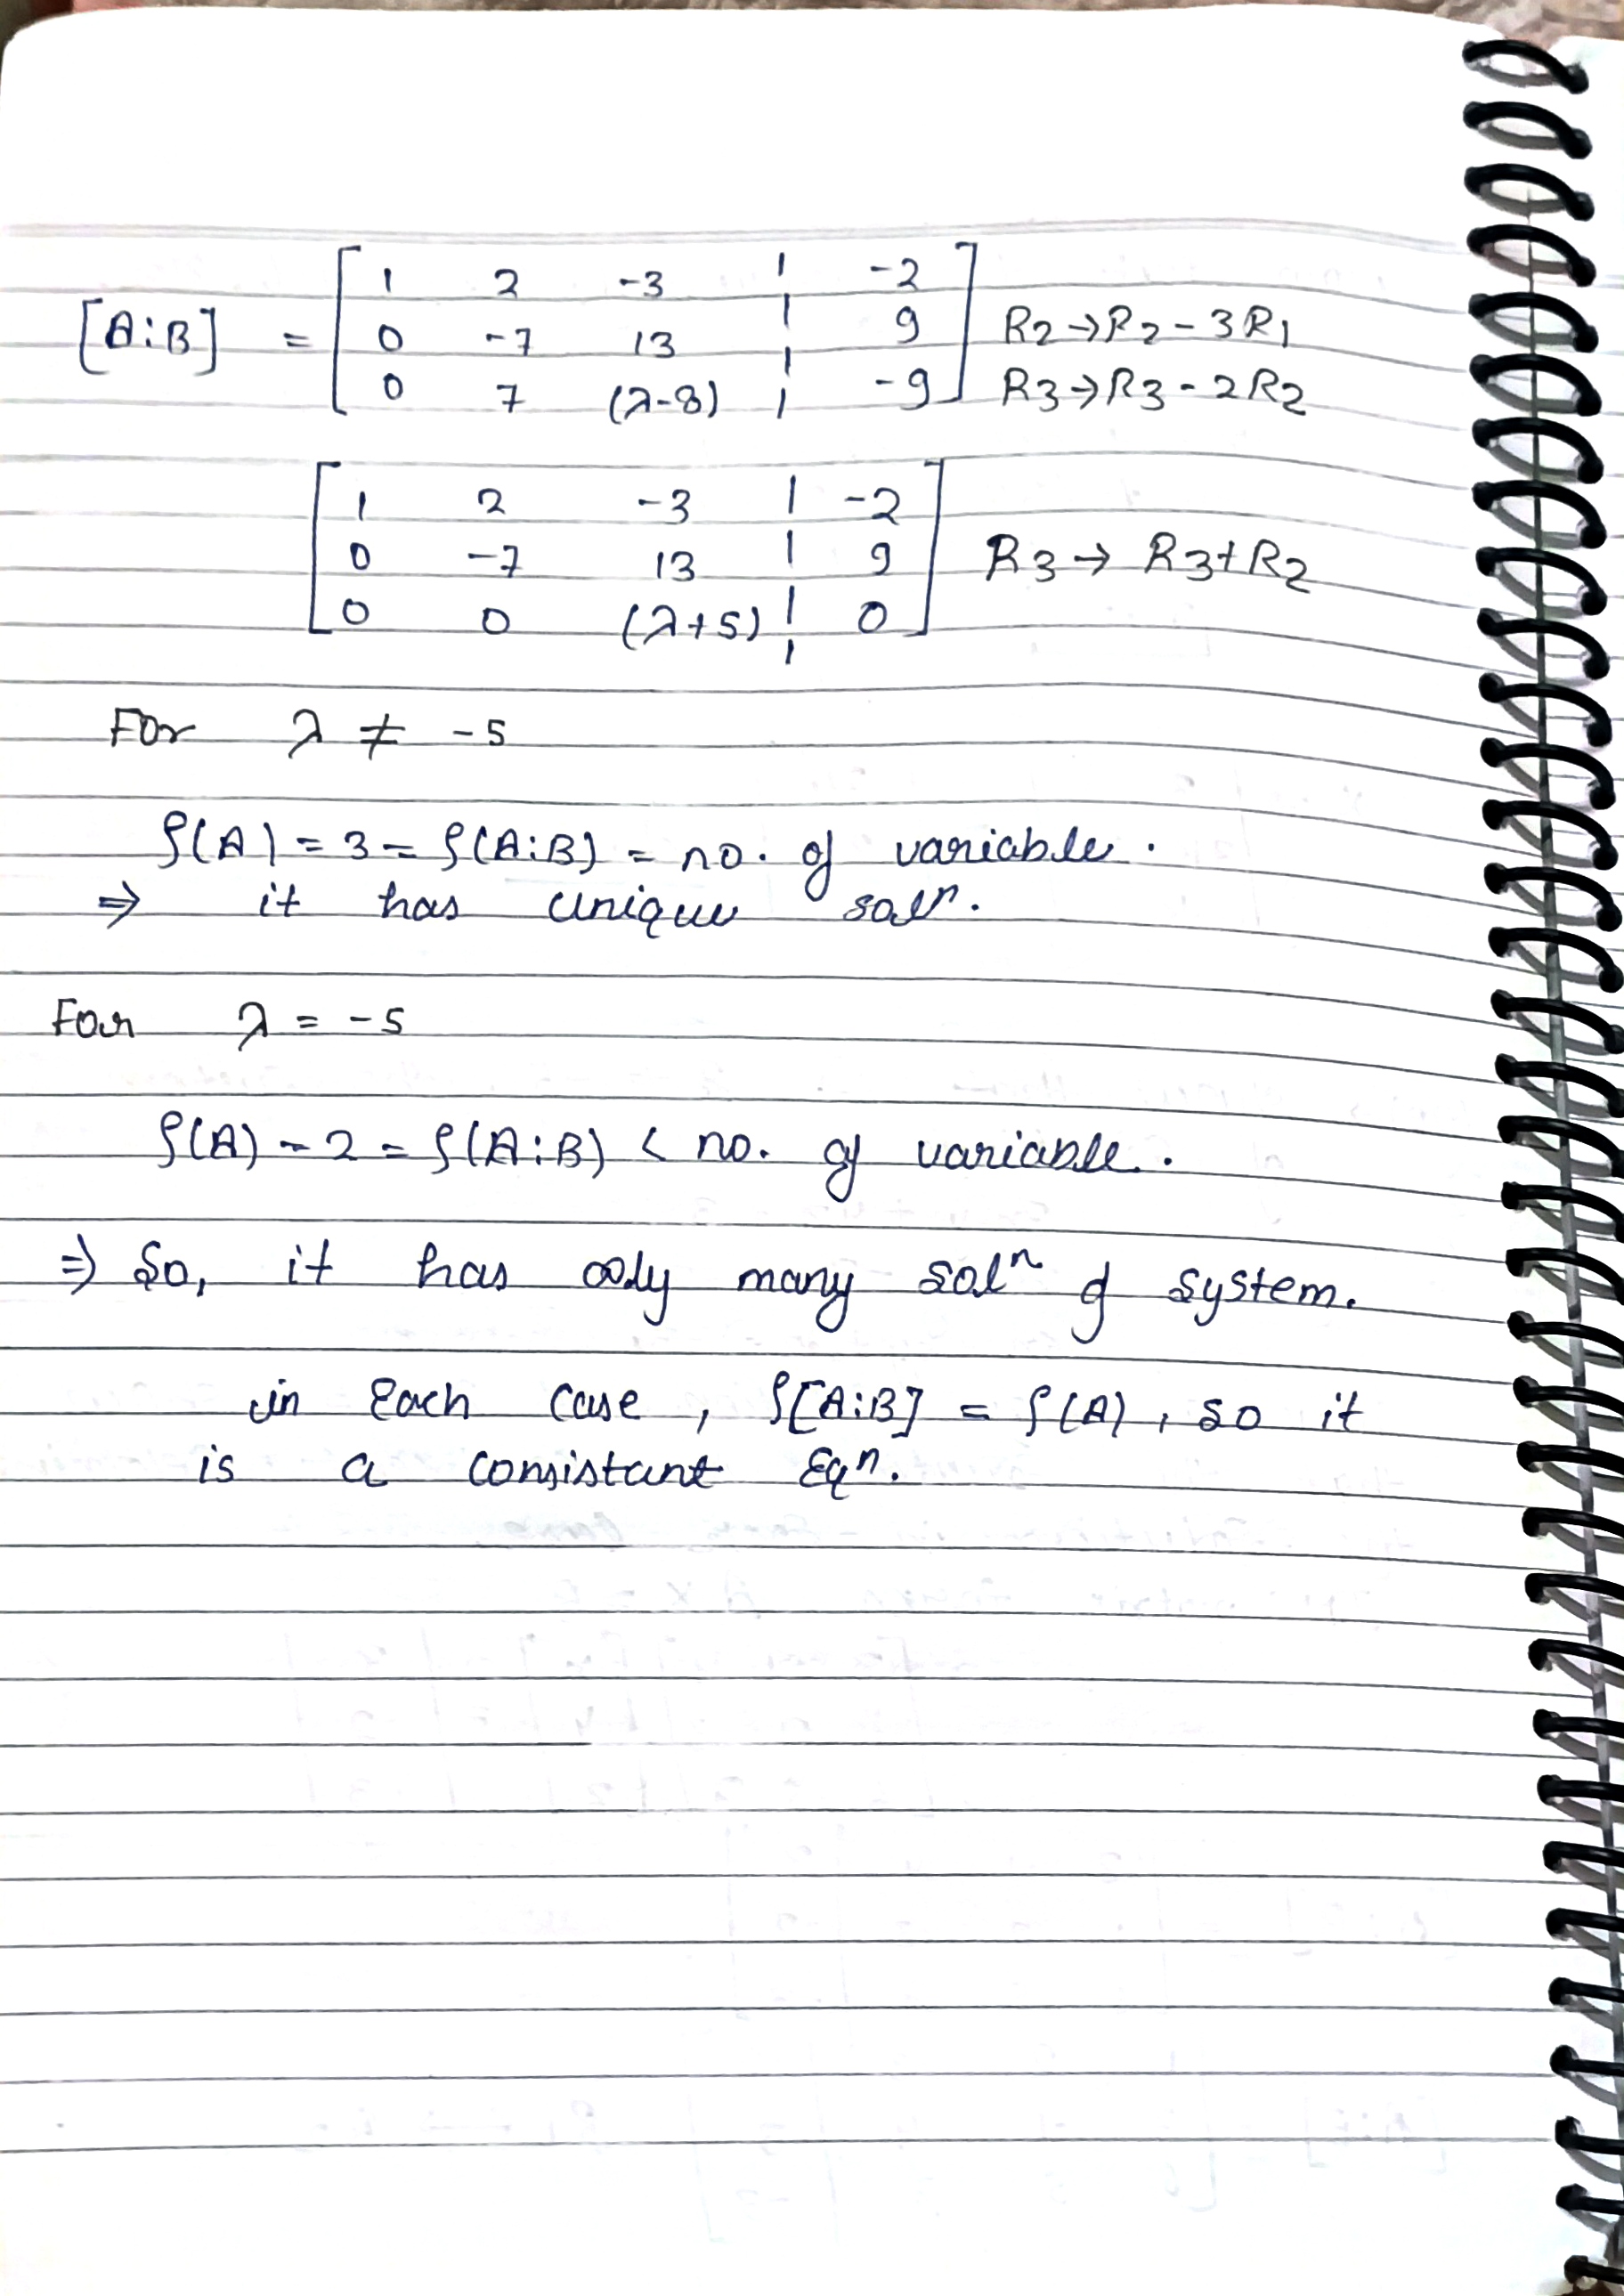 [A:B] = [ 1 2 -3 | -2 ]
[ 0 -7 13 | 9 ] R2→R2-3R1
[ 0 7 (λ-8) | -9 ] R3→R3-2R2
[ 1 2 -3 | -2 ]
[ 0 -7 13 | 9 ] R3→ R3+R2
[ 0 0 (λ+5) | 0 ]
For λ ≠ -5
ρ(A) = 3 = ρ(A:B) = no. of variable.
⇒ it has unique solⁿ.
For λ = -5
ρ(A) - 2 = ρ(A:B) < no. of variable.
⇒ So, it has ∞ly many solⁿ of system.
in Each case, ρ[A:B] = ρ(A), so it
is a consistant Eqⁿ.